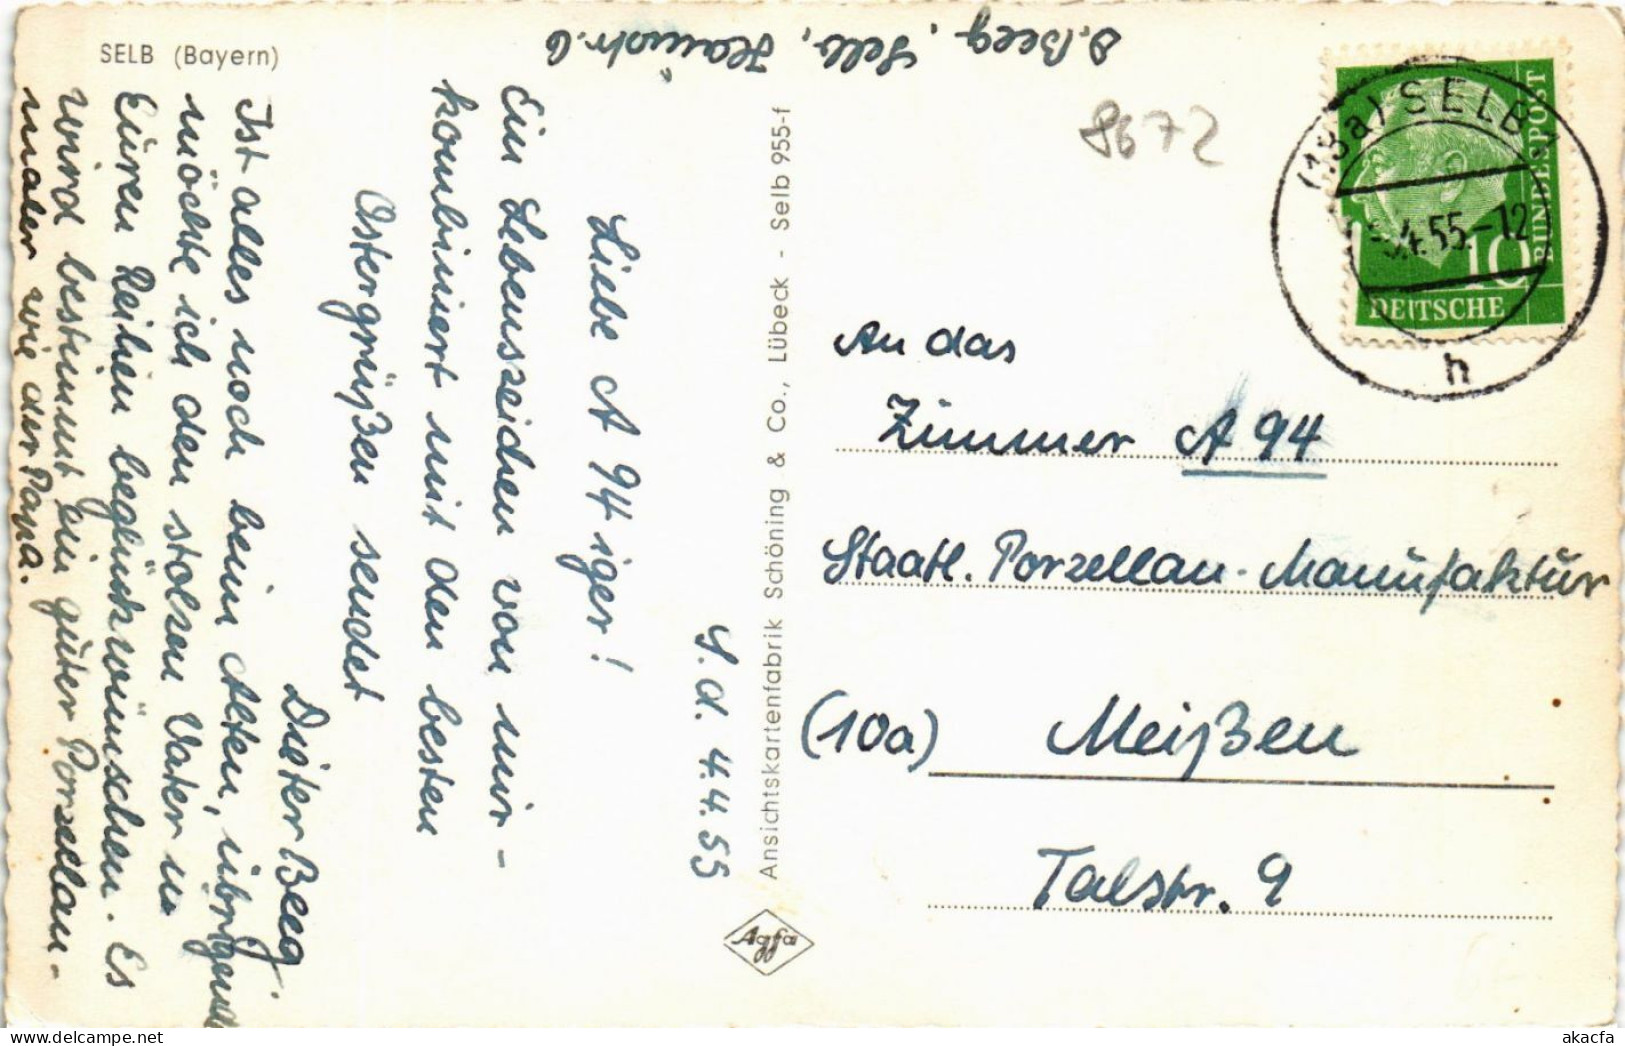 SELB (Bayern)
D. Beeg, Selb, Hainstr. 6
S. d. 4.4.55
Liebe A 94 iger!
Ein Lebenszeichen von mir -
kombiniert mit den besten
Ostergrüßen sendet
Dieter Beeg.
Ist alles noch beim Alten, übrigens
möchte ich den stolzen Vater in
Euren Reihen beglückwünschen. Es
wird bestimmt ein guter Porzellan-
maler wie der Papa.
Ansichtskartenfabrik Schöning & Co., Lübeck - Selb 955-f
Agfa
8672
(13a) SELB
4.55.-12
h
10
BUNDESPOST
DEUTSCHE
An das
Zimmer A 94
Staatl. Porzellan-Manufaktur
(10a) Meißen
Talstr. 9
akacfa